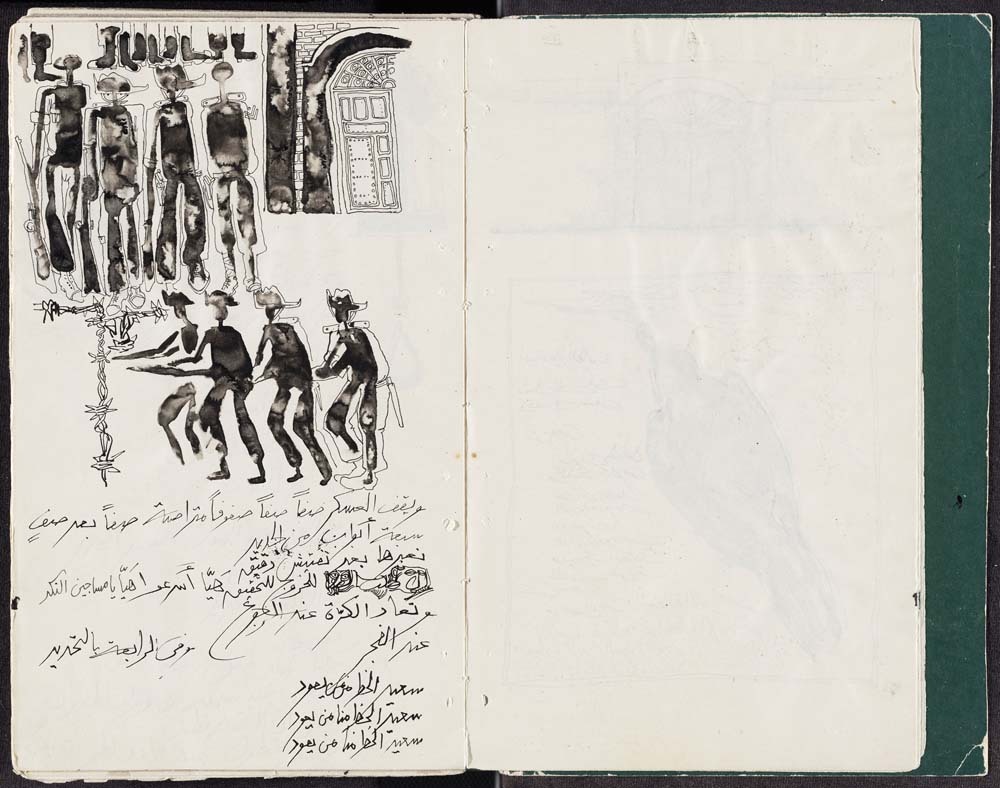 ويقف العسكر صفاً صفاً صفوفاً متراصة صفاً بعد صف
سبعة أبواب من الحديد
نعبرها بعد تفتيش دقيق
للخروج للتحقيق هيّا أسرعوا هيّا يا مساجين النكر
وتعاد الكرّة عند الرجوع
عند الفجر وفي الرابعة بالتحديد
سعيد الحظ من يعود
سعيد الحظ منا من يعود
سعيد الحظ منا من يعود